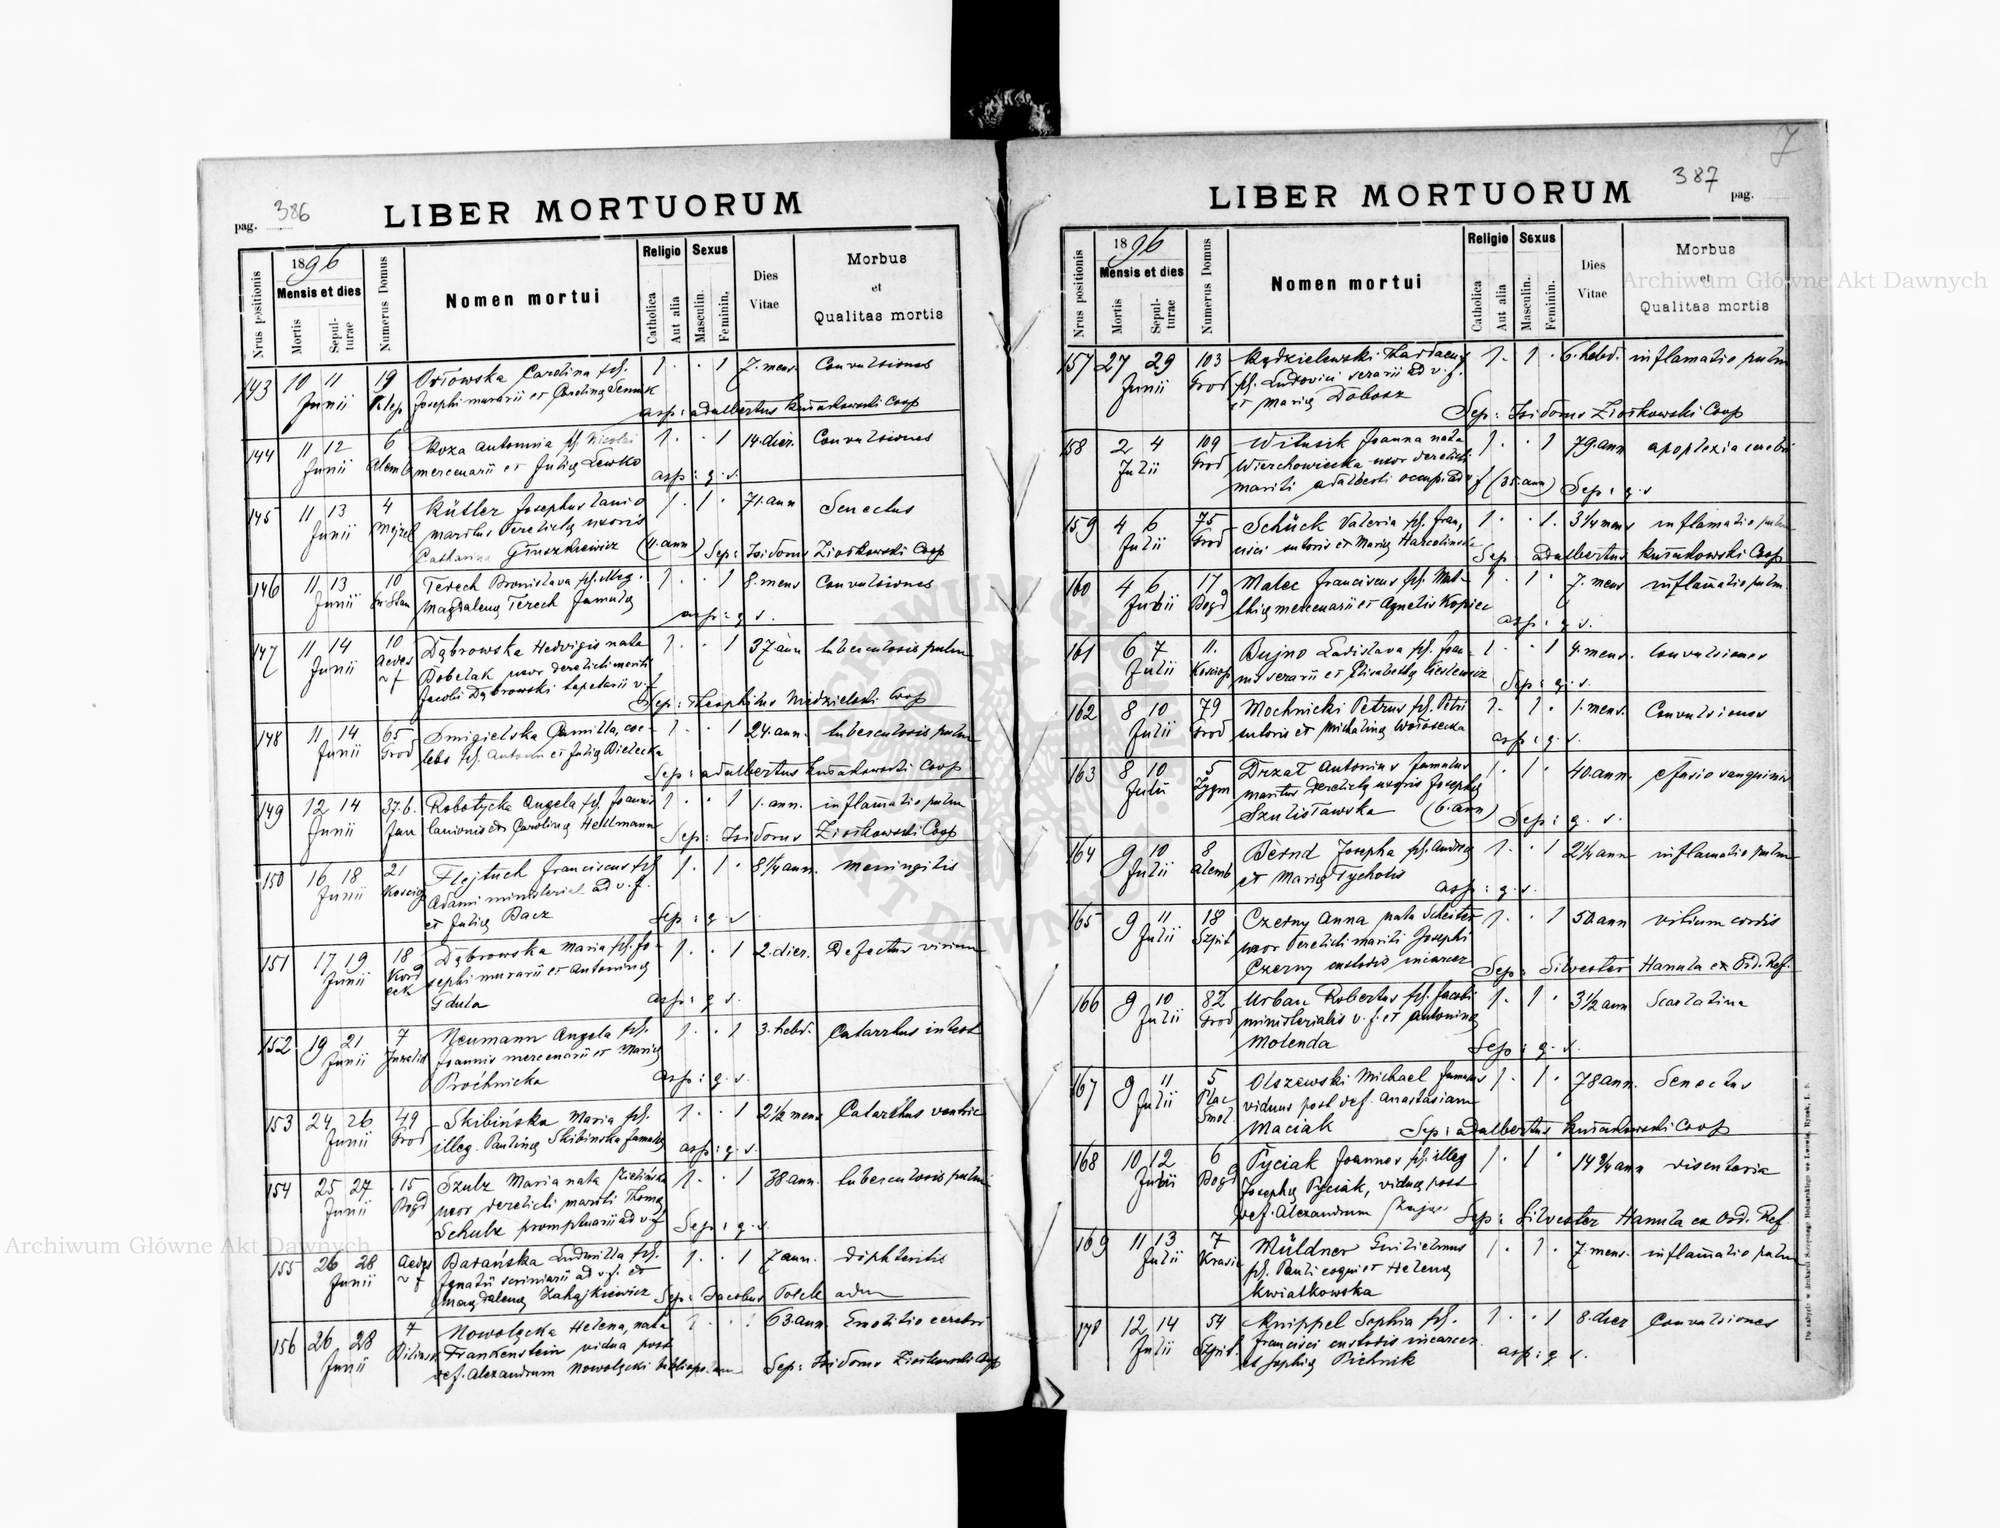 pag. 386
LIBER MORTUORUM
Nrus positionis
1896
Mensis et dies
Mortis
Sepulturae
Numerus Domus
Nomen mortui
Religio
Catholica
Aut alia
Sexus
Masculin.
Feminin.
Dies Vitae
Morbus
et
Qualitas mortis
143 10 11 Junii 19 Orłowska Carolina fil. 1 · · 1 7. mens. Convulsiones
Josephi murarii et Carolina
asp: Adalbertus Coop
144 11 12 Junii 6 Koza Antonina fil. Nicolai 1 · · 1 14. dier. Convulsiones
mercenarii et Julię Lewko
asp: q. s.
145 11 13 Junii 4 Josephus lanio 1 · 1 · 71. ann Senectus
maritus derelictę uxoris
Catharina Gruszkiewicz (11. ann) Sep: Isidorus Ziołkowski Coop
146 11 13 Junii 10 Terech Bronislava fil. illeg. 1 · · 1 8. mens Convulsiones
Magdalenę Terech famulę
asp: q s.
147 11 14 Junii 10 Dąbrowska Hedvigis nata 1 · · 1 37. ann tuberculosis pulm
Bobelak uxor derelicti mariti
Jacobi Dąbrowski tapetarii v. f.
Sep: Theophilus Niedzielski Coop
148 11 14 Junii 65 Grod Smigielska Camilla, coe- 1 · · 1 24. ann. tuberculosis pulm
lebs fil. Antonii et Julię Bielecka
Sep: Adalbertus Coop
149 12 14 Junii 37. b. Jan Robotycka Angela fil. Joannis 1 · · 1 1. ann. inflamatio pulm
lanionis et Carolinę Heldmann
Sep: Isidorus Ziołkowski Coop
150 16 18 Junii 21 Flejtuch Franciscus fil 1 · 1 · 8 1/4 ann. Meningitis
Adami ministerial ad v. f.
et Julię Bacz
Sep: q. s.
151 17 19 Junii 18 Dąbrowska Maria fil. Jo- 1 · · 1 2. dier. Defectus virium
sephi murarii et Antoninę
Gdula
asp: q s.
152 19 21 Junii 7 Neumann Angela fil. 1 · · 1 3. hebd. Catarrhus intest
Joannis mercenarii et Marię
Prochnicka
asp: q. s.
153 24 26 Junii 49 Grod Skibińska Maria fil. 1 · · 1 2 1/2 mens Catarrhus ventric
illeg. Paulinę Skibinska famulę
asp: q. s.
154 25 27 Junii 15 Bogd Szulz Maria nata Zielińska 1 · · 1 38 ann. tuberculosis pulm
uxor derelicti mariti Thomę
Schulz promptuarii ad v. f
Sep: q. s.
155 26 28 Junii Aedes v f Barańska Ludmilla fil. 1 · · 1 7 ann. diphteritis
Ignatii scriniarii ad v. f. et
Magdalenę Zahajkiewicz Sep: Jacobus
156 26 28 Junii 7 Nowolecka Helena, nata 1 · · 1 63. ann. Emolitio cerebri
Frankenstein vidua post
def. Alexandrum Nowolęcki Sep: Isidorus Ziołkowski Coop
387
LIBER MORTUORUM
pag.
Nrus positionis
1896
Mensis et dies
Mortis
Sepulturae
Numerus Domus
Nomen mortui
Religio
Catholica
Aut alia
Sexus
Masculin.
Feminin.
Dies Vitae
Morbus
et
Qualitas mortis
157 27 29 Junii 103 Grod 1 · 1 · 6. hebd. inflamatio pulm
fil. Ludovici ad v. f.
et Marię Dobosz
Sep: Isidorus Ziołkowski Coop
158 2 4 Julii 109 Grod Witusik Joanna nata 1 · · 1 79. ann apoplexia cerebri
Wierchowieska uxor derelicti
mariti Adalberti (35. ann) Sep: q. s
159 4 6 Julii 75 Grod Schück Valeria fil. Fran- 1 · · 1. 3 1/4 mens inflamatio pulm
cisci sutoris et Marię
Sep. Adalbertus Coop
160 4 6 Julii 17 Bogd Malec Franciscus fil. Mat- 1 · 1 · 7. mens inflamatio pulm.
thię mercenarii et Agnetis Kopiec
asp: q. s.
161 6 7 Julii 11. Bujno Ladislava fil. Joan- 1 · · 1 4. mens. Convulsiones
nis et Elisabethę
Sep: q. s.
162 8 10 Julii 79 Grod Mochnicki Petrus fil. Petri 1 · 1 · 1. mens. Convulsiones
sutoris et Michalinę
asp: q. s.
163 8 10 Julii 5 Zygm Drzał Antonius famulus 1 · 1 · 40. ann. efusio sanguinis
maritus derelictę uxoris Josephę
Szulisławska (6. ann) Sep: q. s.
164 9 10 Julii 8 Alemb Bernd Josepha fil. Andreę 1 · · 1 2 1/4 ann inflamatio pulm
et Marię Tycholis
asp: q. s.
165 9 11 Julii 18 Szpit Czerny Anna nata 1 · · 1 50. ann vitium cordis
uxor derelicti mariti Josephi
Czerny custodis incarcer
Sep: Silvester Hanula ex Ord. Ref.
166 9 10 Julii 82 Grod Urban Robertus fil. Jacobi 1 · 1 · 3 1/2 ann Scarlatina
ministerialis v. f. et Antoninę
Molenda
Sep: q. s.
167 9 11 Julii 5 Plac Smol Olszewski Michael famulus 1 · 1 · 78 ann. Senectus
viduus post def. Anastasiam
Maciak Sep: Adalbertus Coop
168 10 12 Julii 6 Bogd Pyciak Joannes fil. illeg 1 · 1 · 14 3/4 ann disenteria
Josephę Pyciak, viduę post
def. Alexandrum Sep: Silvester Hanula ex Ord. Ref.
169 11 13 Julii 7 Müldner Guilielmus 1 · 1 · 7. mens. inflamatio pulm
fil. Pauli coqui et Helenę
Kwiatkowska
170 12 14 Julii 54 Szpit. Knippel Sophia fil. 1 · · 1 8. dier Convulsiones
Francisci custodis incarcer
et Sophię Pichnik
asp: q s.
Archiwum Główne Akt Dawnych
Archiwum Główne Akt Dawnych
ARCHIWUM GŁÓWNE AKT DAWNYCH